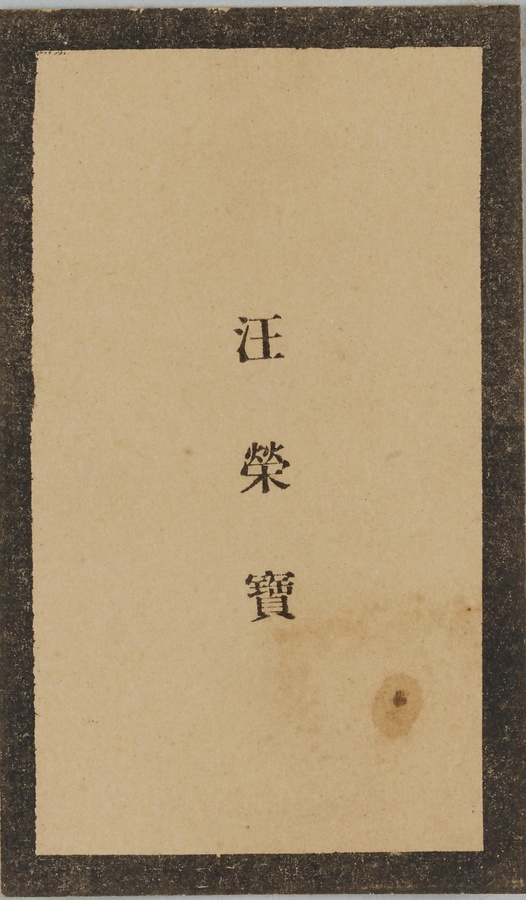 汪榮寶